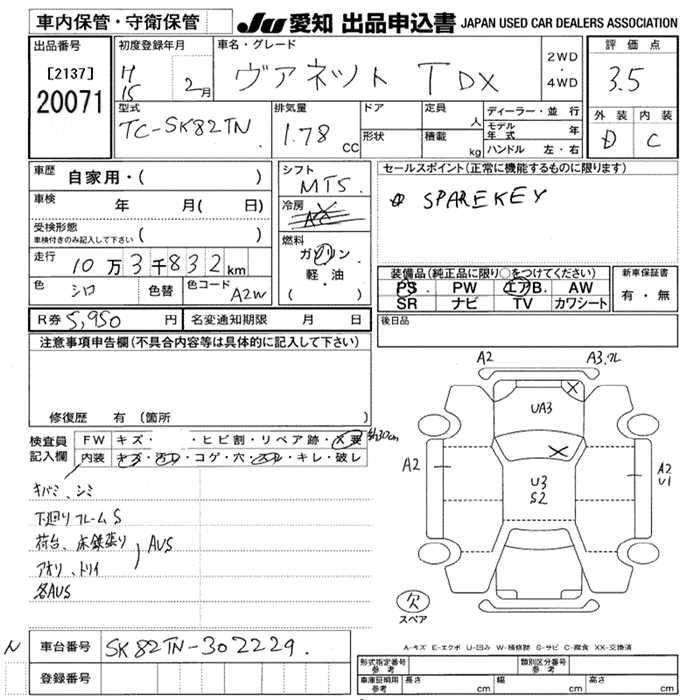 車内保管・守衛保管
JU 愛知 出品申込書 JAPAN USED CAR DEALERS ASSOCIATION
出品番号
[2137]
20071
初度登録年月
H15 2月
車名・グレード
ヴァネット TDX
2WD
・
4WD
評価点
3.5
外装 内装
D C
型式
TC-SK82TN
排気量
1.78 cc
ドア
形状
定員 人
積載 kg
ディーラー・並行
モデル年式 年
ハンドル 左・右
車歴 自家用・( )
車検 年 月( 日)
受検形態
車検付きのみ記入して下さい ( )
走行 10万3千832km
色 シロ 色替 色コード A2W
シフト
MT5
冷房
AC
燃料
ガソリン
軽・油
(・ )
セールスポイント(正常に機能するものに限ります)
SPAREKEY
装備品(純正品に限り○をつけてください)
PS PW エアB. AW
SR ナビ TV カワシート
新車保証書
有・無
R券 5,950 円 名変通知期限 月 日
後日品
注意事項申告欄(不具合内容等は具体的に記入して下さい)
修復歴 有(箇所
検査員記入欄
FW キズ・ ・ヒビ割・リペア跡・X要 30cm
内装 キズ・汚れ・コゲ・穴・スレ・キレ・破レ
キバミ、シミ
下廻りフレームS
荷台、床鉄張り
アオリ、トリイ
AUS
各AUS
A2 A3.ワレ
UA3
A2
U3
S2
A2
U1
欠
スペア
A-キズ E-エクボ U-凹み W-補修跡 S-サビ C-腐食 XX-交換済
N
車台番号 SK82TN-302229.
登録番号
形式指定番号 参考 類別区分番号 参考
車庫証明用 参考 長さ cm 幅 cm 高さ cm